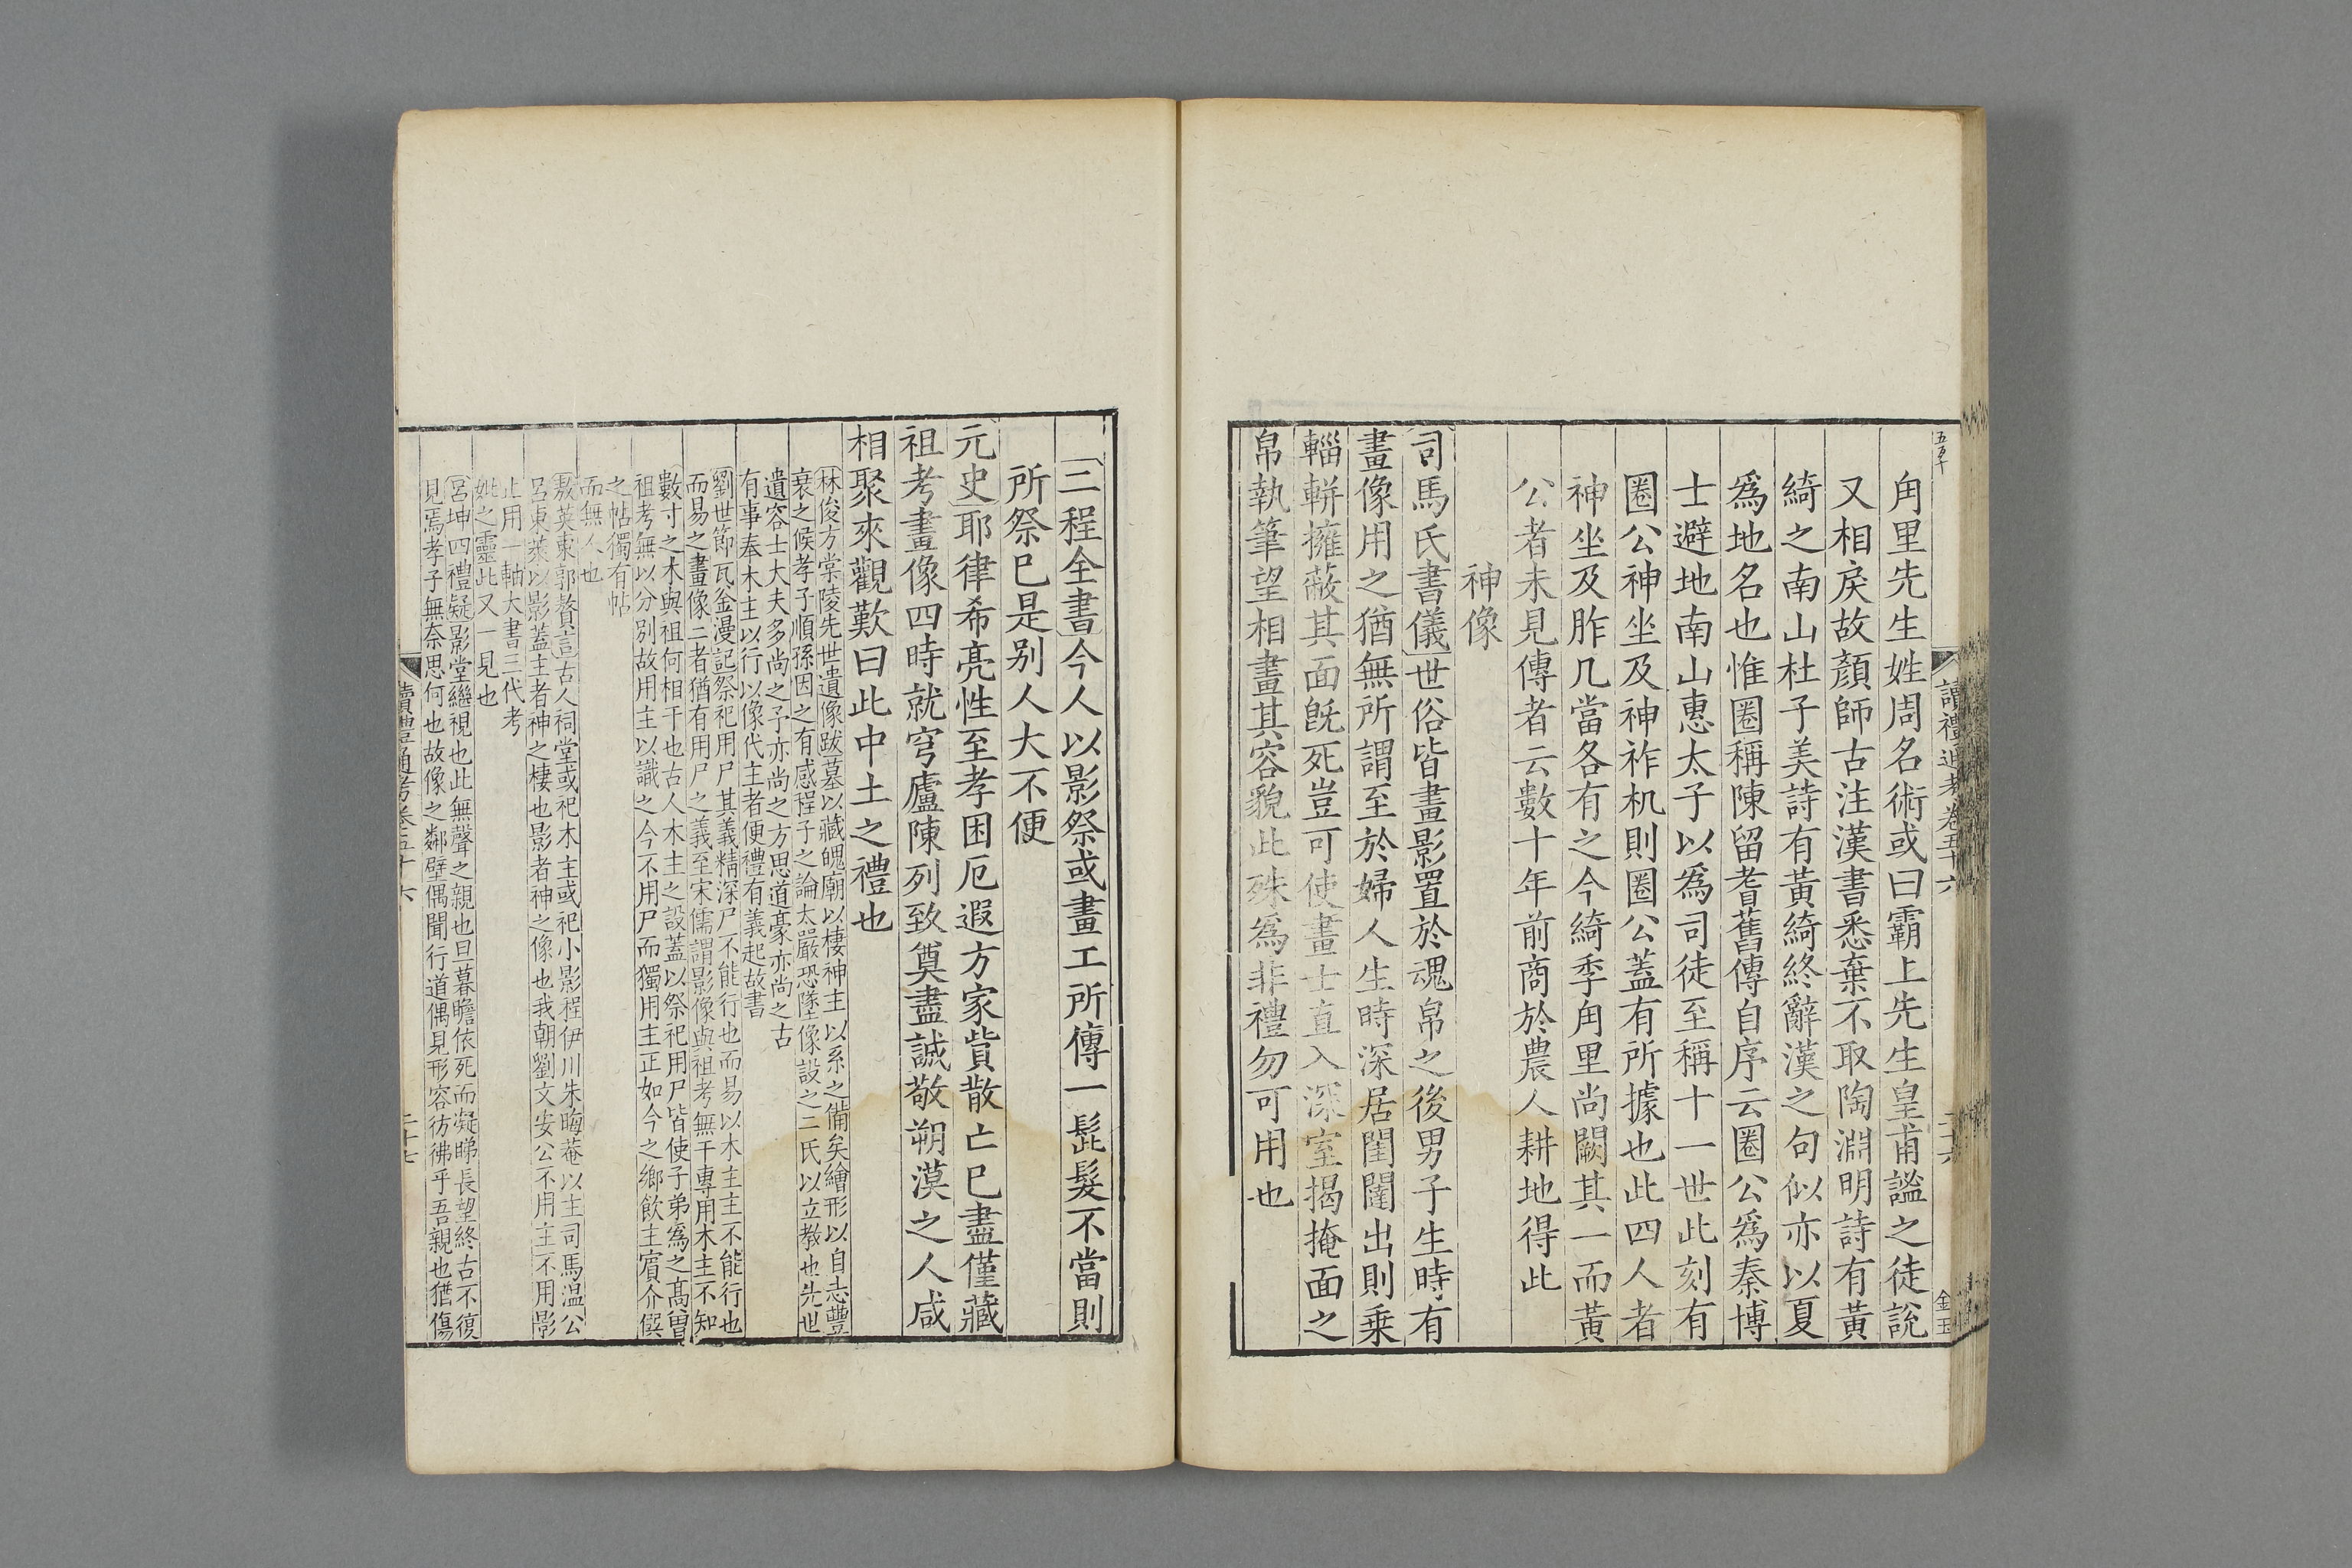 五百五十
讀禮通考卷五十六
二十六
金玉
角里先生姓周名術或曰霸上先生皇甫謐之徒說
又相戾故顏師古注漢書悉棄不取陶淵明詩有黃
綺之南山杜子美詩有黃綺終辭漢之句似亦以夏
爲地名也惟圈稱陳留耆舊傳自序云圈公爲秦博
士避地南山惠太子以爲司徒至稱十一世此刻有
圈公神坐及神祚机則圈公蓋有所據也此四人者
神坐及胙几當各有之今綺季角里尚闕其一而黃
公者未見傳者云數十年前商於農人耕地得此
神像
司馬氏書儀世俗皆畫影置於魂帛之後男子生時有
畫像用之猶無所謂至於婦人生時深居閨闥出則乗
輜軿擁蔽其面旣死豈可使畫士直入深室揭掩面之
帛執筆望相畫其容貌此殊爲非禮勿可用也
二程全書今人以影祭或畫工所傳一髭髮不當則
所祭已是别人大不便
元史耶律希亮性至孝困厄遐方家貲散亡已盡僅藏
祖考畫像四時就穹廬陳列致奠盡誠敬朔漠之人咸
相聚來觀歎曰此中土之禮也
林俊方棠陵先世遺像跋墓以藏魄廟以棲神主以系之備矣繪形以自志豐
衰之候孝子順孫因之有感程子之論太嚴恐墜像設之二氏以立敎也先世
遺容士大夫多尚之予亦尚之方思道豪亦尚之古
有事奉木主以行以像代主者便禮有義起故書
劉世節瓦釜漫記祭祀用尸其義精深尸不能行也而易以木主主不能行也
而易之畫像二者猶有用尸之義至宋儒謂影像與祖考無干專用木主不知
數寸之木與祖何相干也古人木主之設蓋以祭祀用尸皆使子弟爲之高曾
祖考無以分别故用主以識之今不用尸而獨用主正如今之鄉飲主賓介僎
之帖獨有帖
而無人也
敖英東郭贅言古人祠堂或祀木主或祀小影程伊川朱晦菴以主司馬温公
呂東萊以影蓋主者神之棲也影者神之像也我朝劉文安公不用主不用影
止用一軸大書三代考
妣之靈此又一見也
呂坤四禮疑影堂繼視也此無聲之親也旦暮瞻依死而凝睇長望終古不復
見焉孝子無奈思何也故像之鄰壁偶聞行道偶見形容彷彿乎吾親也猶傷
讀禮通考卷五十六
二十七